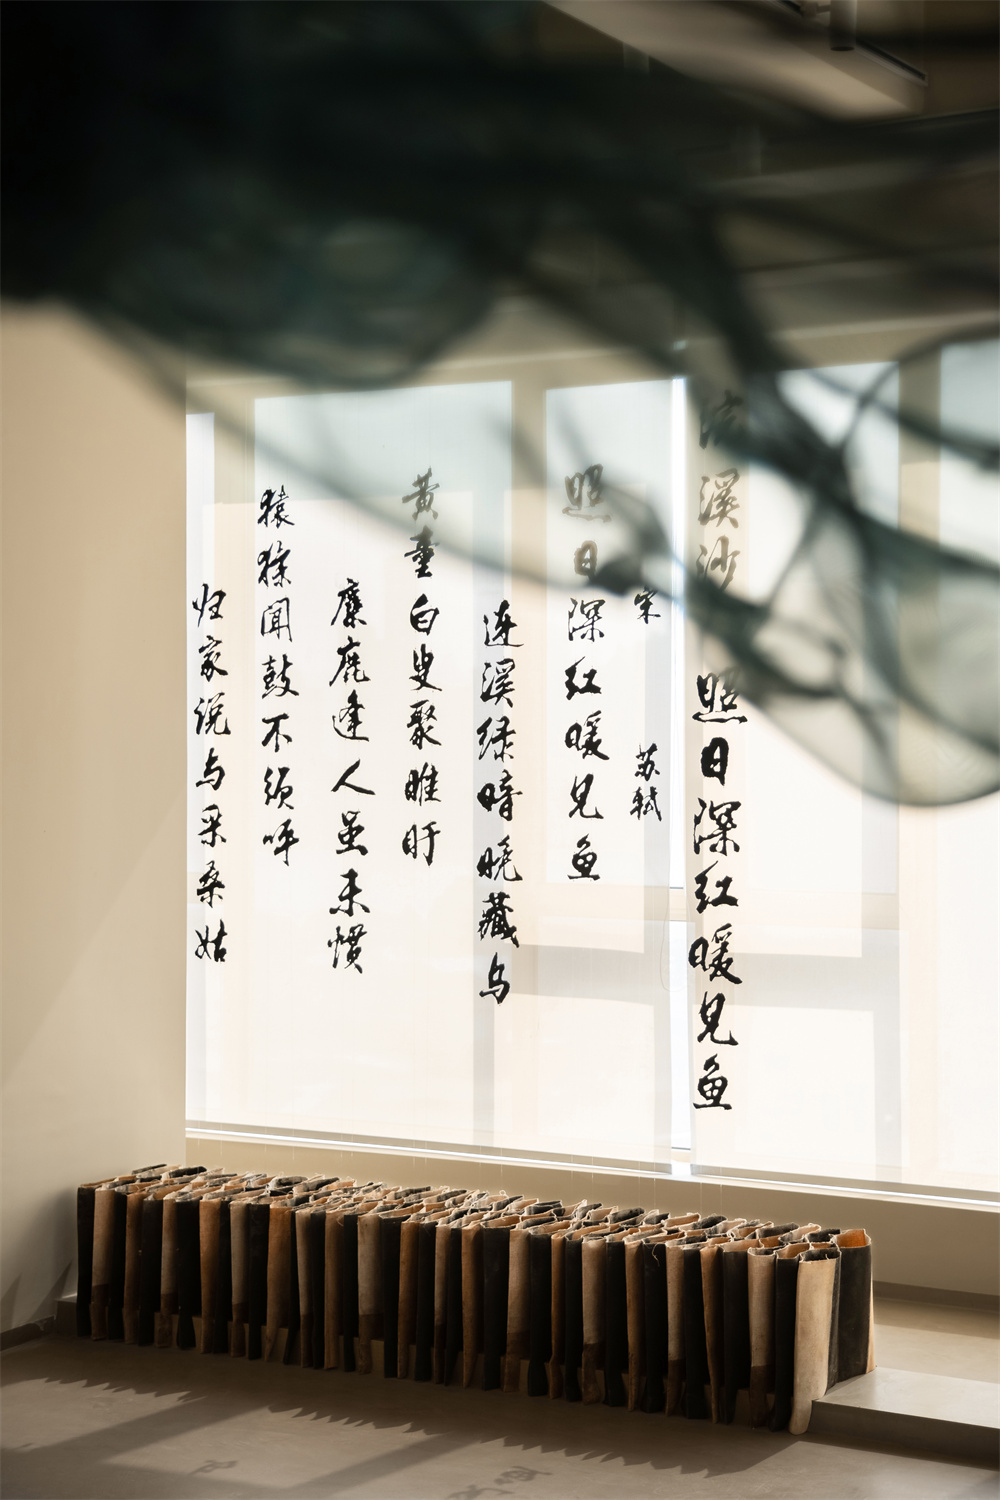 浣溪沙 照日深红暖见鱼
宋 苏轼
照日深红暖见鱼
连溪绿暗晚藏乌
黄童白叟聚睢盱
麋鹿逢人虽未惯
猿猱闻鼓不须呼
归家说与采桑姑